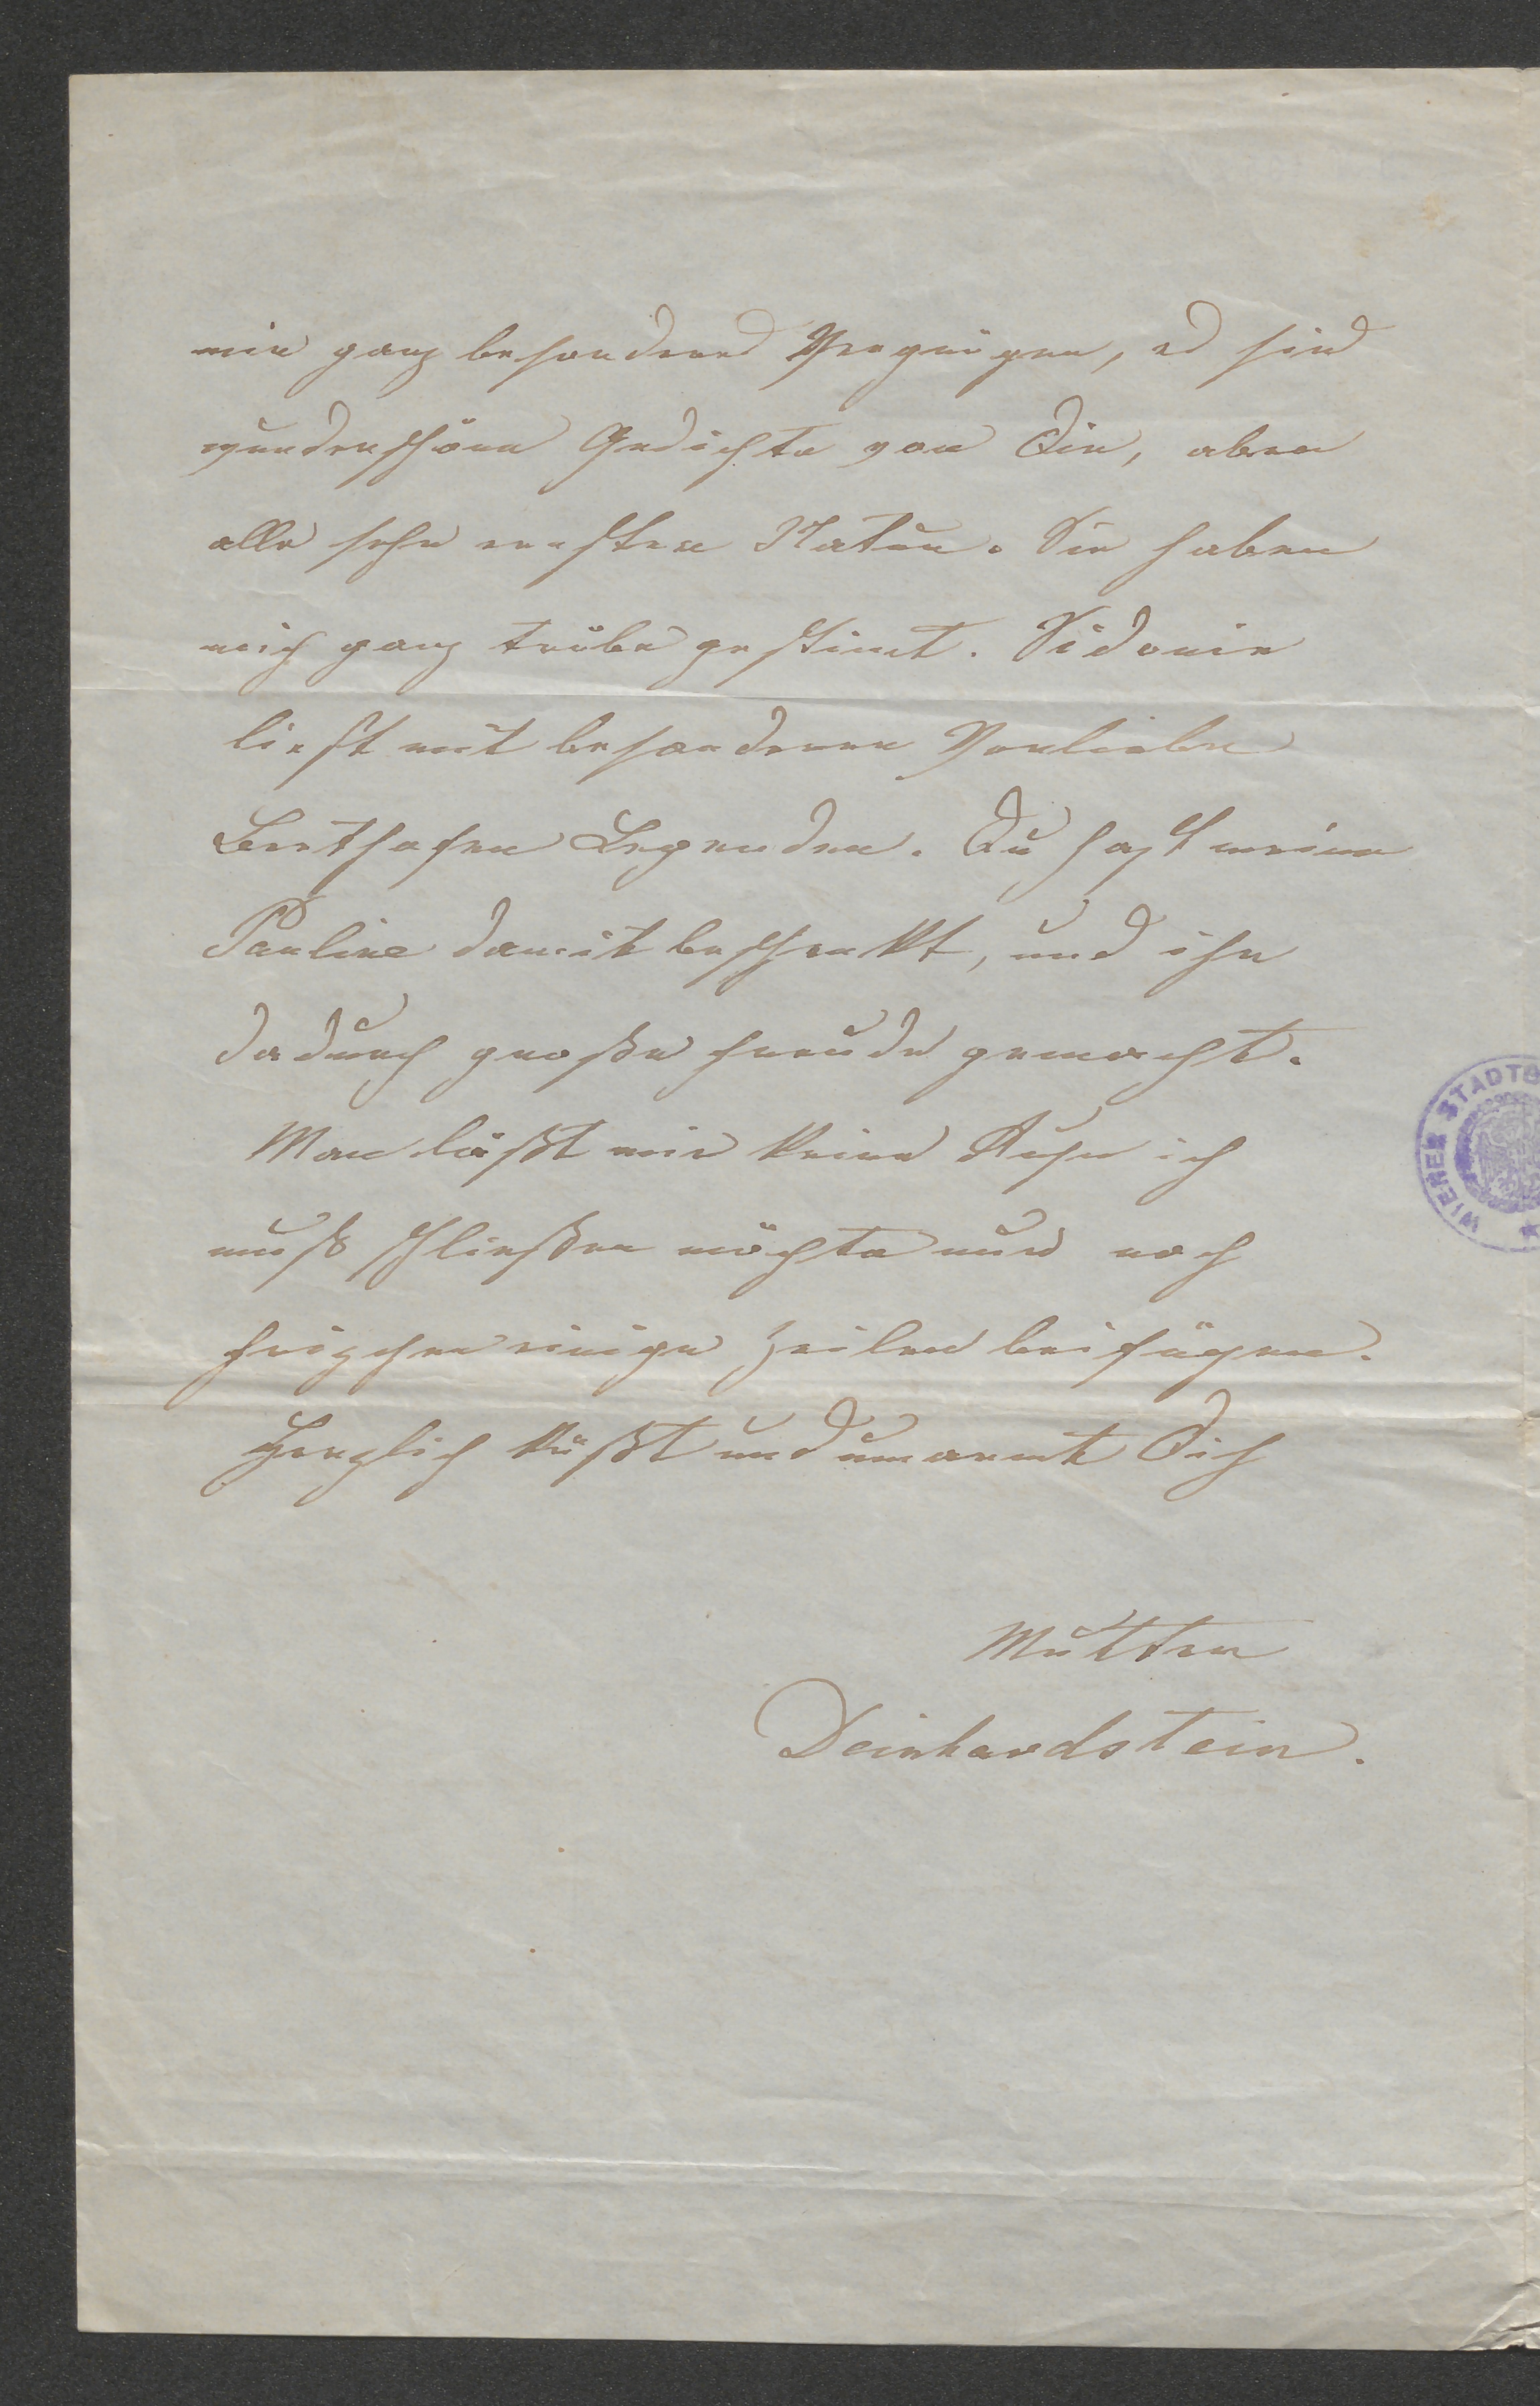 mir ganz besonderes Vergnügen, es sind
wunderschöne Gedichte von Dir, aber
alle sehr ernster Natur. Sie haben
mich ganz trübe gestimt. Sidonie
liest mit besonderer Vorliebe
Legenden. Du hast meine
Pauline damit beschenkt, und ihr
dadurch große Freude gemacht.
Man läßt mir keine Ruhe ich
muß schließen möchte nur noch
einige Zeilen beifügen.
Herzlich küßt und umarmt Dich
Mutter
Deinhardstein.
WIENER STADTB